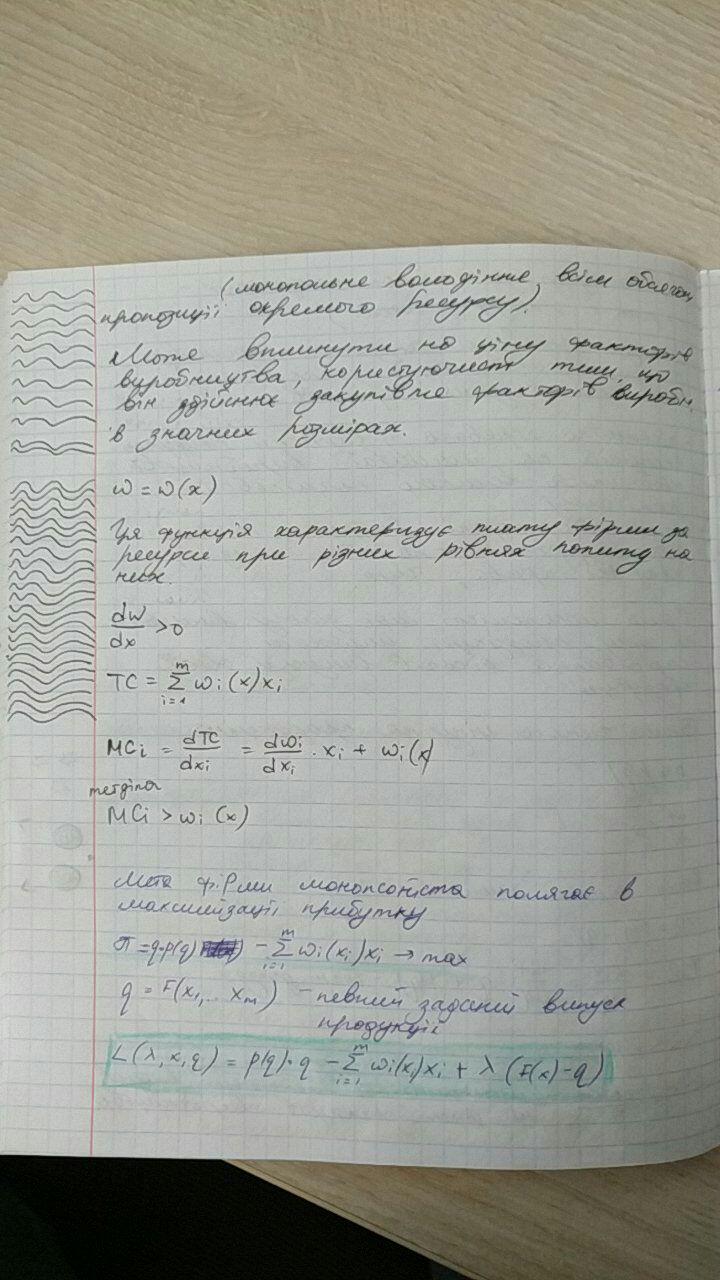 (монопольне володіння всім обсягом
пропозиції окремого ресурсу).
Може вплинути на ціну факторів
виробництва, користуючись тим, що
він здійснює закупівлю факторів виробн.
в значних розмірах.
w = w(x)
Ця функція характеризує плату фірми за
ресурси при різних рівнях попиту на
них.
dw/dx > 0
TC = ∑_{i=1}^{m} wi(x)xi
MCi = dTC/dxi = dwi/dxi · xi + wi(x)
MCi > wi(x)
Мета фірми монопсоніста полягає в
максимізації прибутку
π = q·p(q) − ∑_{i=1}^{m} wi(xi)xi → max
q = F(x1,... xm) – певний заданий випуск
продукції
L(λ,x,q) = p(q)·q − ∑_{i=1}^{m} wi(xi)xi + λ(F(x)−q)